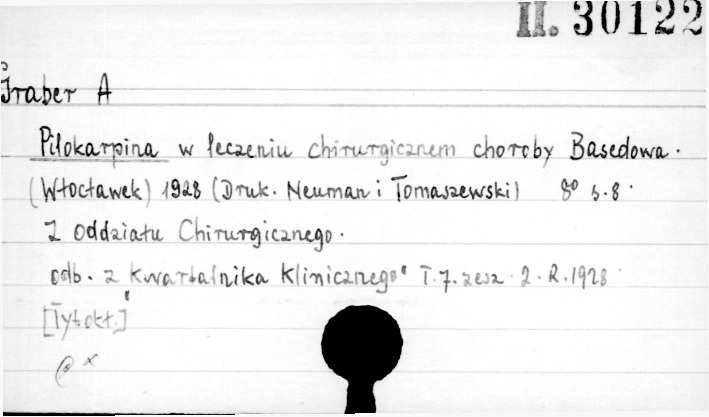 II. 30122
Graber A
Pilokarpina w leczeniu chirurgicznem choroby Basedowa.
(Włocławek) 1928 (Druk. Neuman i Tomaszewski) 8° s. 8.
Z oddziału Chirurgicznego.
odb. z Kwartalnika Klinicznego" T. 7. zesz. 2. R. 1928
[Tyt. okł.]"
@ x